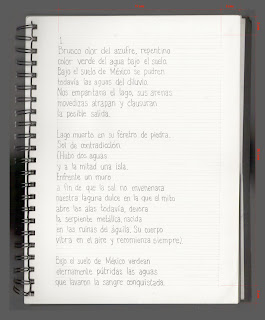 1
Brusco olor del azufre, repentino
color verde del agua bajo el suelo.
Bajo el suelo de México se pudren
todavía las aguas del diluvio.
Nos empantana el lago, sus arenas
movedizas atrapan y clausuran
la posible salida.
Lago muerto en su féretro de piedra.
Sol de contradicción.
(Hubo dos aguas
y a la mitad una isla.
Enfrente un muro
a fin de que la sal no envenenara
nuestra laguna dulce en la que el mito
abre las alas todavía, devora
la serpiente metálica, nacida
en las ruinas del águila. Su cuerpo
vibra en el aire y recomienza siempre).
Bajo el suelo de México verdean
eternamente pútridas las aguas
que lavaron la sangre conquistada.